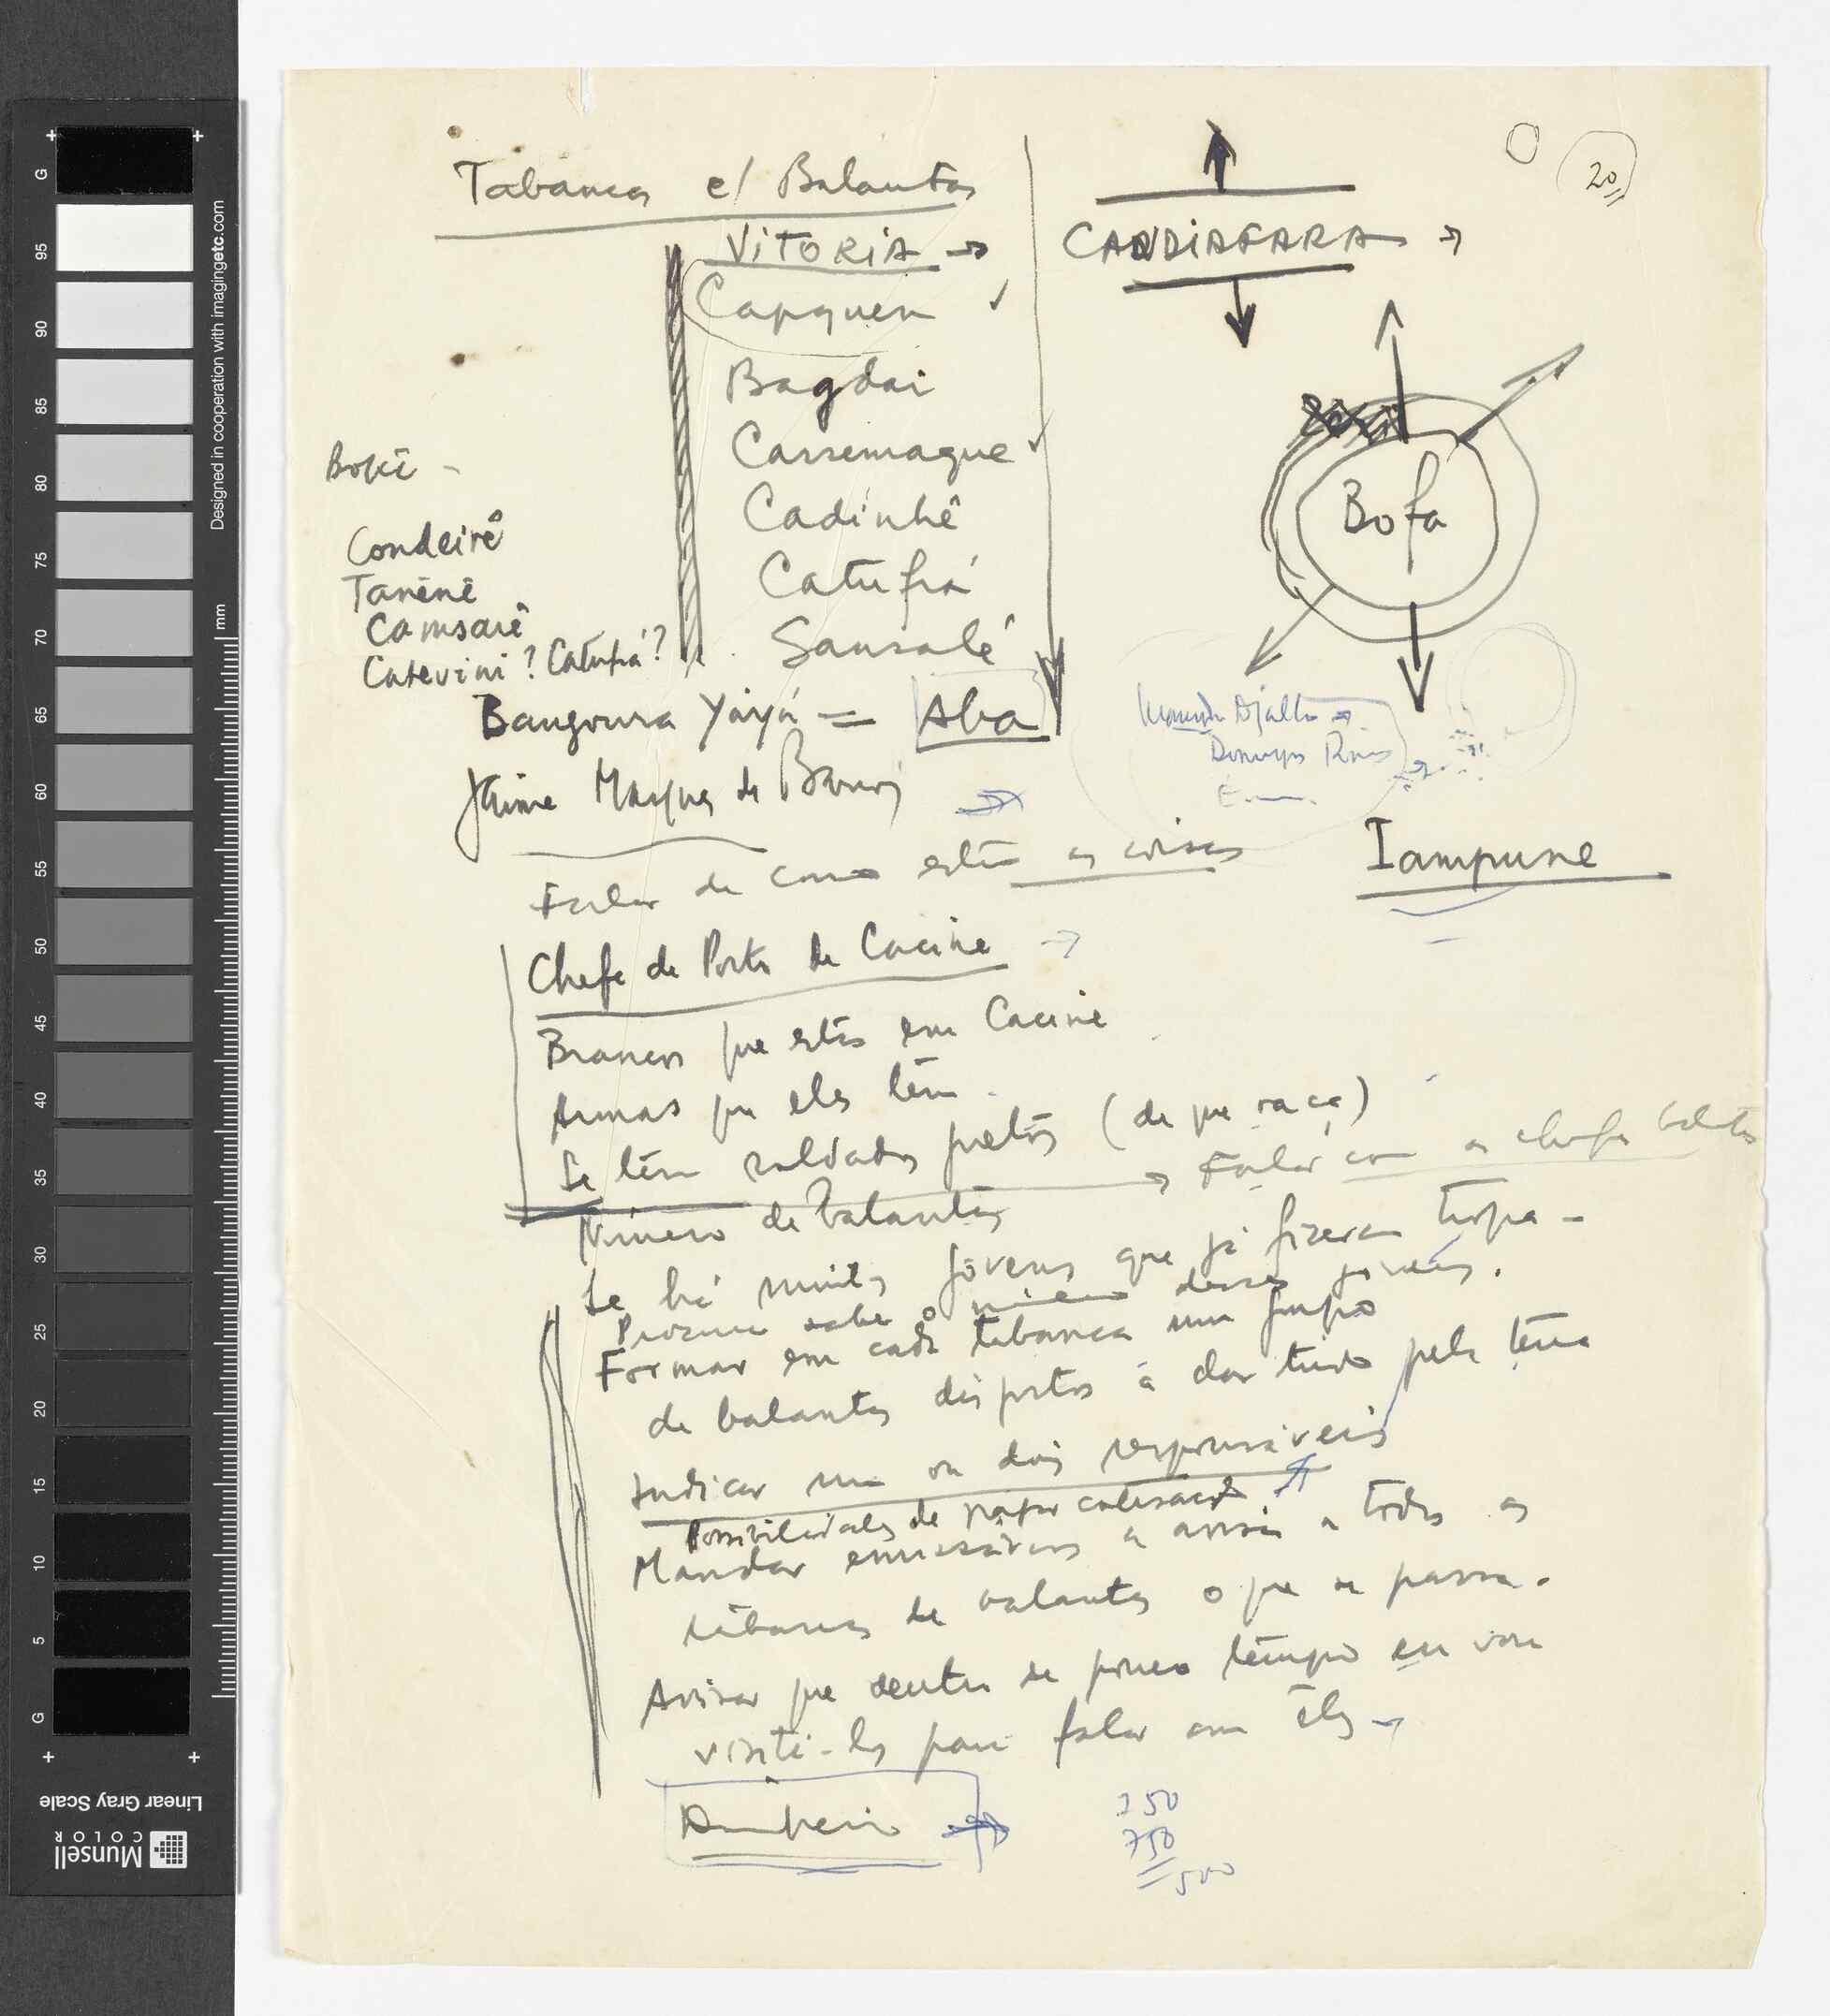 20
Tabancas c/ Balantas
VITORIA →
CANDIAFARA →
Capquen ✓
Bagdai
Carremaque ✓
Cadinhê
Catufá
Sansalé
Boké -
Condeirê
Tanênê
Camsarê
Catevini? Catufá?
Bofa
Bangoura Yáyá = Aba
Djalló →
Domingos Ramos
Jaime
Falar de como estão as coisas
Iampune
Chefe de Posto de Cacine →
Brancos que estão em Cacine
Armas que eles têm.
Se têm soldados pretos (de que raça)
Número de balantas → Falar com os chefes balantas
Se há muitos jovens que já fizeram tropa -
Procurar saber o número desses jovens.
Formar em cada tabanca um grupo
de balantas dispostos a dar tudo pela terra
Indicar um ou dois responsáveis
Possibilidades de pagar cotisação
Mandar emissários a avisar a todas as
tabancas de balantas o que se passa.
Avisar que dentro de pouco tempo eu vou
visitá-los para falar com êles →
Dinheiro →
750
750
1500
G 95 90 85 80 75 70 65 60 55 50 45 40 35 30 25 20 15 10 5 G
mm
Designed in cooperation with imagingetc.com
Munsell COLOR
Linear Gray Scale